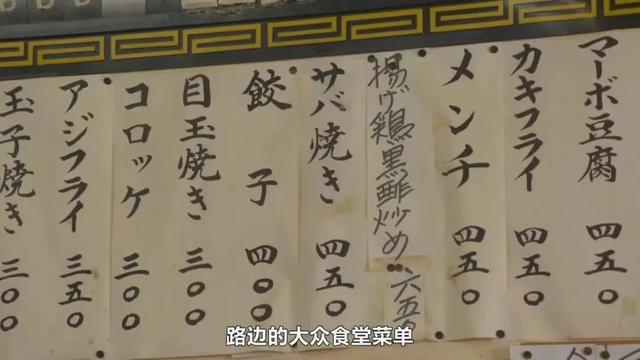 マーボ豆腐 四五〇
カキフライ 四五〇
メンチ 四五〇
揚げ鶏黒酢炒め 六五
サバ焼き 四五〇
餃子 四〇〇
目玉焼き 三〇〇
コロッケ 三〇〇
アジフライ 三五〇
玉子焼き 三〇〇
路边的大众食堂菜单